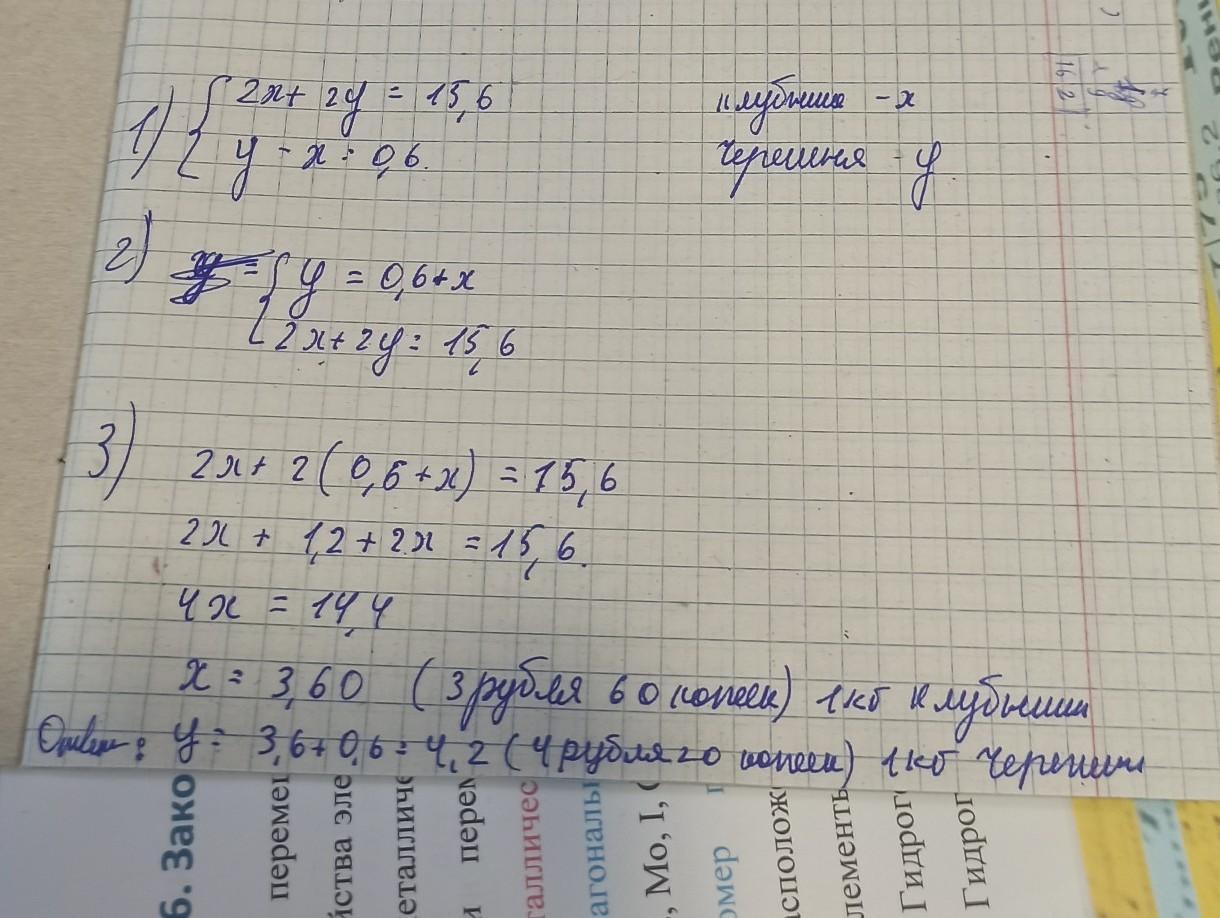 1) 2x + 2y = 15,6
y - x = 0,6.
клубника - x
Черешня - y
2) y = 0,6 + x
2x + 2y = 15,6
3) 2x + 2(0,6 + x) = 15,6
2x + 1,2 + 2x = 15,6.
4x = 14,4
x = 3,60 (3 рубля 60 копеек) 1кг клубники
Ответ: y = 3,6 + 0,6 = 4,2 (4 рубля 20 копеек) 1кг Черешни
6. Зако
перемен
йства эле
еталличе
и перем
талличес
агональ
, Mo, I, 
омер
асполож
лементы
Гидрог
Гидрог